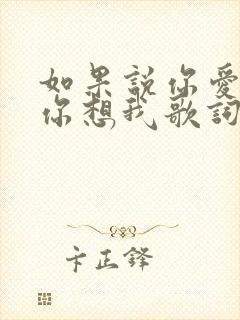 如果説你愛
你想我歌詞
卡正鋒